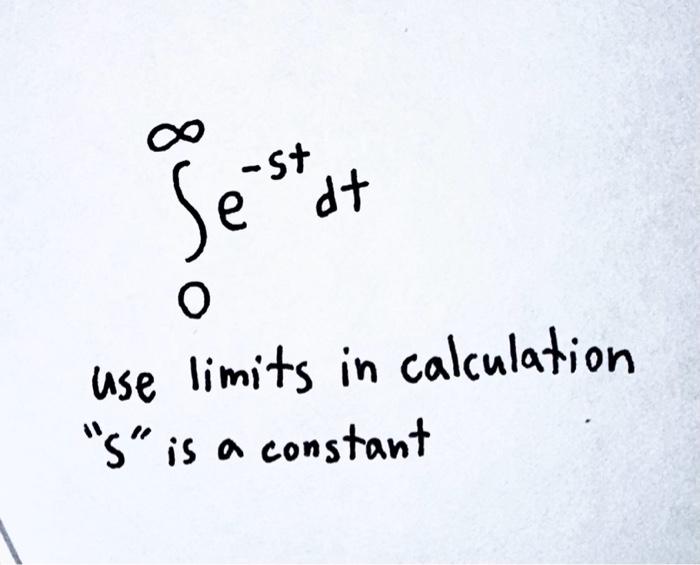 ∞
∫e^-st dt
0
use limits in calculation
"s" is a constant